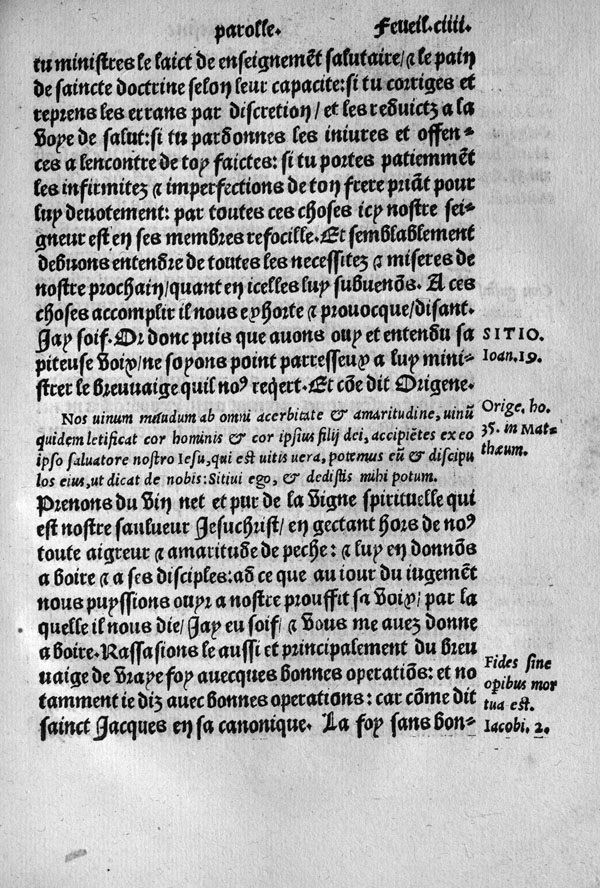 parolle. Feueil. ciiii.
tu ministres le laict de enseignemẽt salutaire/ & le pain
de saincte doctrine selon leur capacite: si tu corriges et
reprens les errans par discretion/ et les reduictz a la
voye de salut: si tu pardonnes les iniures et offen-
ces a lencontre de toy faictes: si tu portes patiemmẽt
les infirmitez & imperfections de ton frere priãt pour
luy deuotement: par toutes ces choses icy nostre sei-
gneur est en ses membres refocille. Et semblablement
debuons entendre de toutes les necessitez & miseres de
nostre prochain/ quant en icelles luy subuenõs. A ces
choses accomplir il nous exhorte & prouocque/ disant.
Jay soif. Or donc puis que auons ouy et entendu sa
piteuse voix/ ne soyons point parresseux a luy mini-
strer le breuuaige quil noꝰ reqert. Et cõe dit Origene.
SITIO.
Ioan. 19.
Nos uinum mũdum ab omni acerbitate & amaritudine, uinũ
quidem letificat cor hominis & cor ipsius filij dei, accipiẽtes ex eo
ipso saluatore nostro Iesu, qui est uitis uera, potemus eũ & discipu
los eius, ut dicat de nobis: Sitiui ego, & dedistis mihi potum.
Orige. ho.
35. in Mat-
thæum.
Prenons du vin net et pur de la vigne spirituelle qui
est nostre saulueur Jesuchrist/ en gectant hors de noꝰ
toute aigreur & amaritude de peche: & luy en donnõs
a boire & a ses disciples: ad ce que au iour du iugemẽt
nous puyssions ouyr a nostre prouffit sa voix/ par la
quelle il nous die/ Jay eu soif/ & vous me auez donne
a boire. Rassasions le aussi et principalement du breu
uaige de vraye foy auecques bonnes operatiõs: et no
tamment ie diz auec bonnes operations: car cõme dit
sainct Jacques en sa canonique. La foy sans bon-
Fides sine
opibus mor
tua est.
Iacobi. 2.